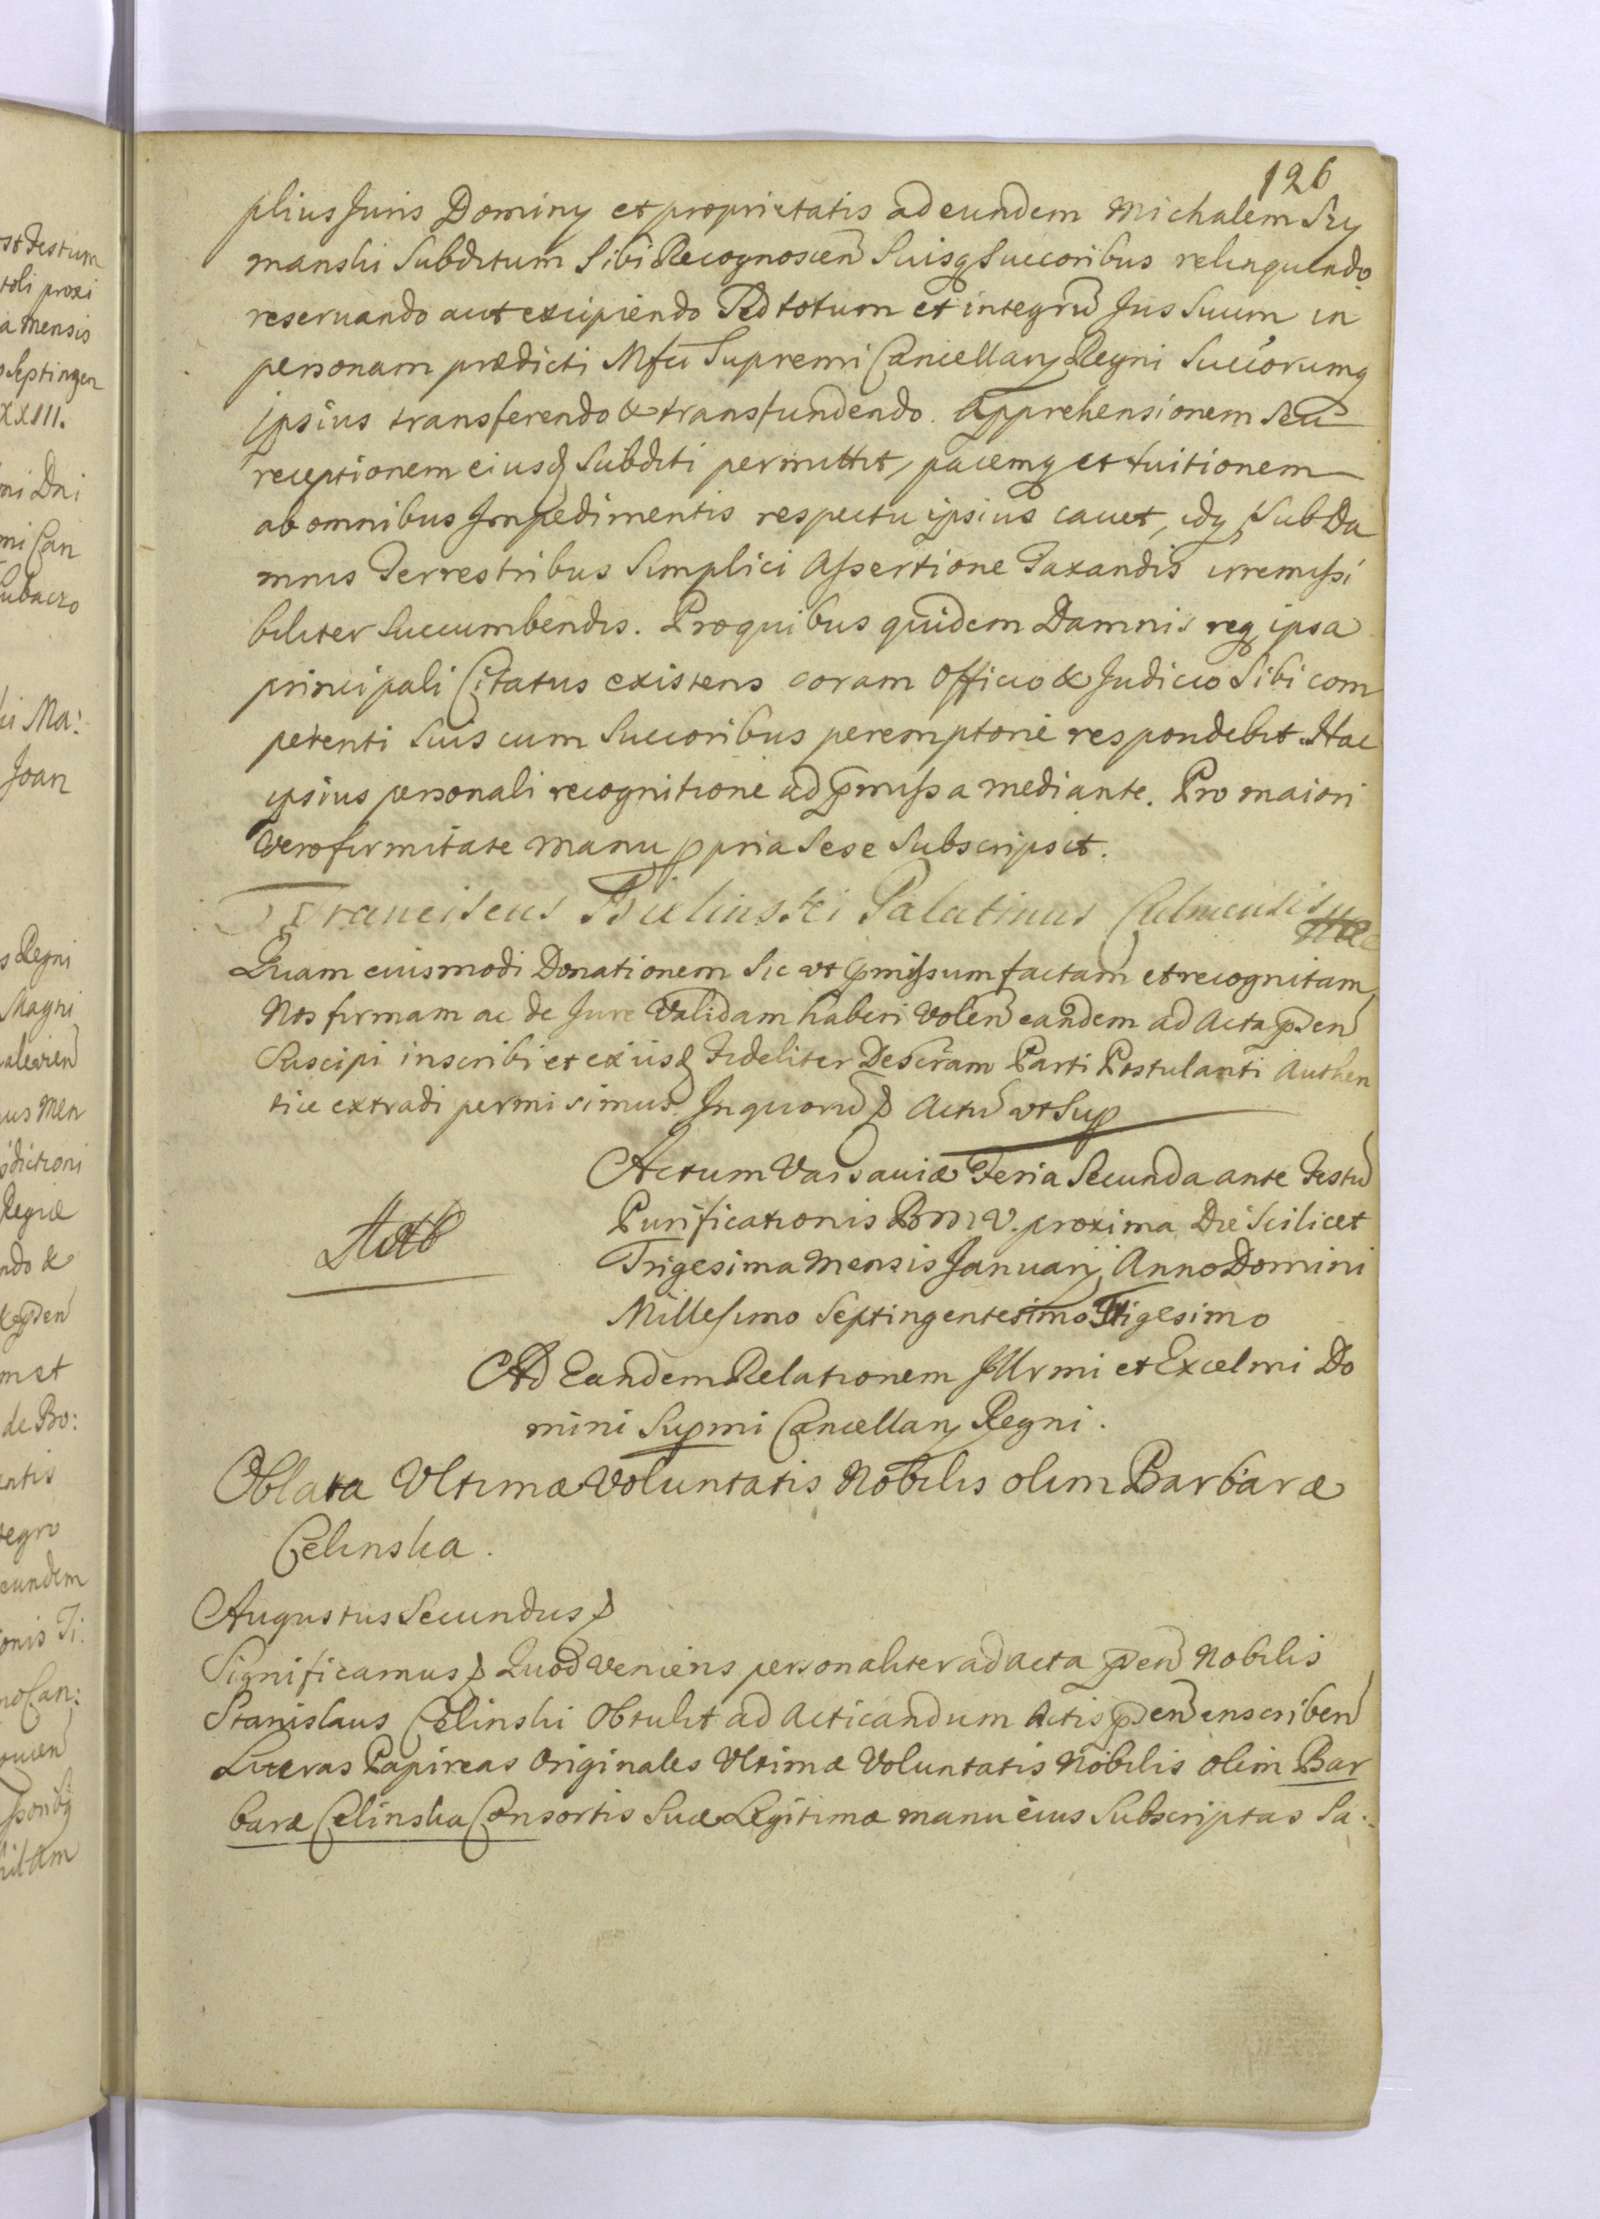 126
plius Juris Dominy et proprietatis ad eundem Michalem Szy
manski Subditum Sibi Recognoscen Suisq Succoribus relinquendo
reseruando aut excipiendo Sed totum et integrũ Jus Suum in
personam prædicti Mfci Supremi Cancellary Regni Succorumq
ipsius transferendo & transfundendo. Apprehensionem Seu
receptionem eiusd Subditi permittit, pacemq et tuitionem
ab omnibus Impedimentis respectu ipsius cauet, idq Sub Da
mnis Terrestribus Simplici Assertione Taxandis irremissi
biliter Succumbendis. Pro quibus quidem Damnis req ipsa
principali Citatus existens coram Officio & Judicio Sibi com
petenti Suis cum Succoribus peremptorie respondebit. Hac
ipsius personali recognitione ad pmissa mediante. Pro maiori
Vero firmitate manu ppria Sese Subscripsit.
Franciscus Bielinski Palatinus Culmensis
Quam eiusmodi Donationem Sic ut pmissum factam et recognitam
Nos firmam ac de Jure Validam haberi Volen eandem ad Acta pden
Suscipi inscribi et ex iisd Fideliter Descram Parti Postulanti Authen
tice extradi permisimus. In quorũ Actũ ut Sup
Actum Varsauiæ Feria Secunda ante Festũ
Purificationis B M V. proxima Die Scilicet
Trigesima Mensis Januarij Anno Domini
Millesimo Septingentesimo Trigesimo
Ad Eandem Relationem Jllrmi et Excelmi Do
mini Supmi Cancellary Regni.
Oblata Vltimæ Voluntatis Nobilis olim Barbaræ
Celinska.
Augustus Secundus
Significamus Quod Veniens personaliter ad Acta pden Nobilis
Stanislaus Celinski Obtulit ad Acticandum Actis pden inscriben
Literas Papireas Originales Vltimæ Voluntatis Nobilis olim Bar
baræ Celinska Consortis Suæ Legitimæ manu eius Subscriptas Sa: